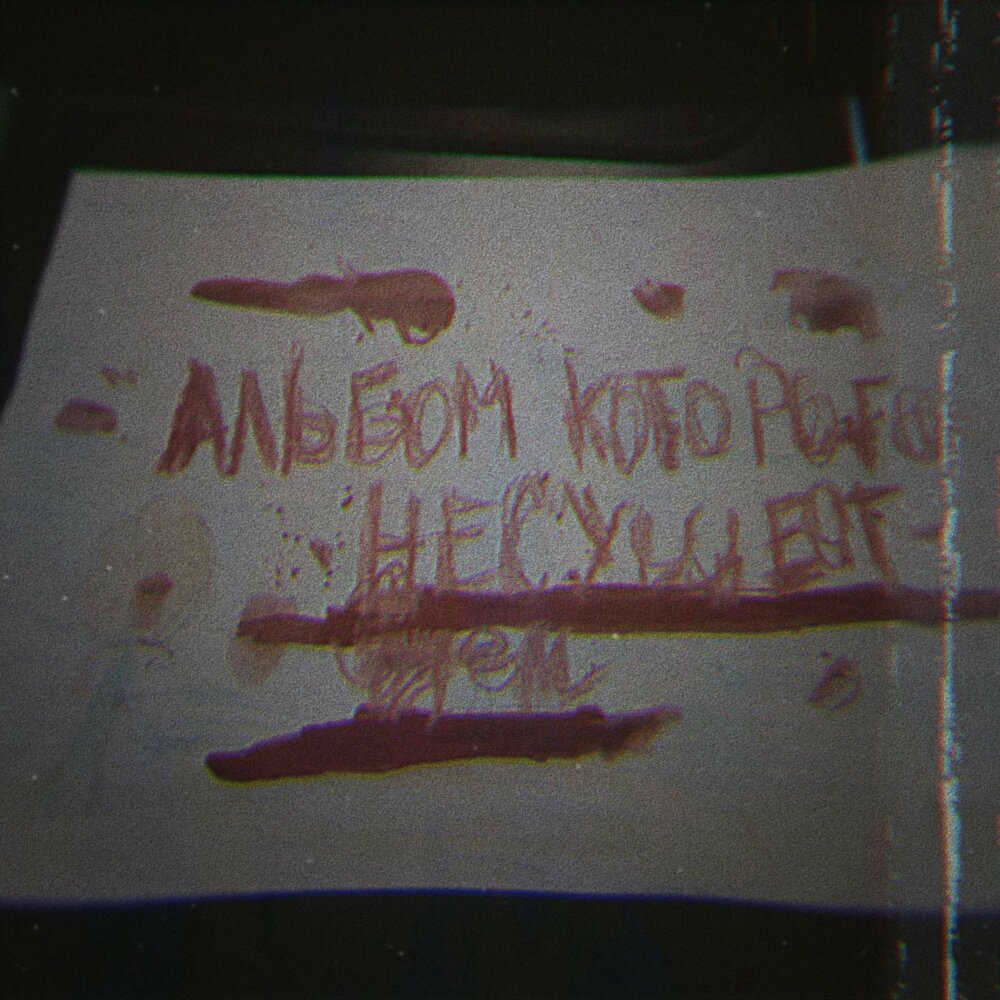 АЛЬБОМ КОТОРОГО
НЕСУЩЕСТ-